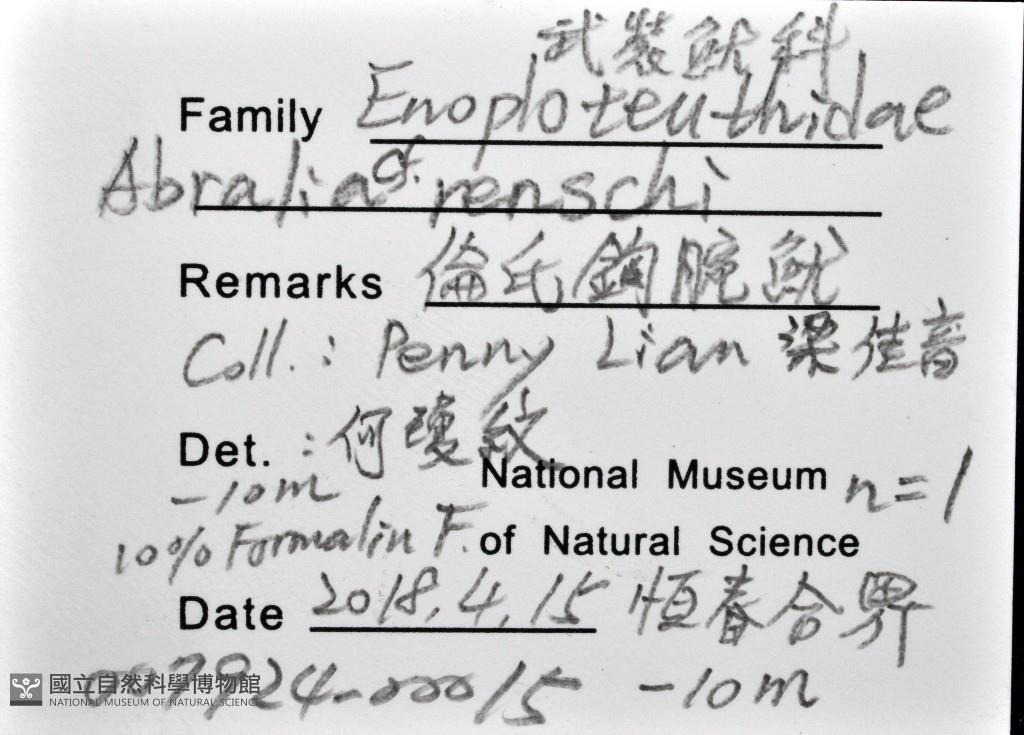 武裝魷科
Family Enoploteuthidae
Abralia cf. renschi
Remarks 倫氏鉤腕魷
Coll.: Penny Lian 梁佳音
Det. : 何瓊紋
-10m National Museum n=1
10% Formalin F. of Natural Science
Date 2018.4.15 恒春合界
7924-00015 -10m
國立自然科學博物館
NATIONAL MUSEUM OF NATURAL SCIENCE